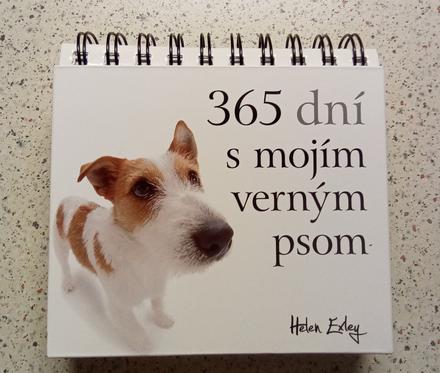 365 dní
s mojím
verným
psom
Helen Exley